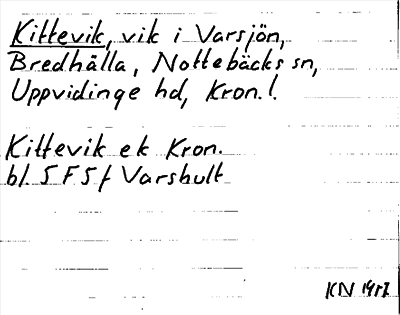 Kittevik, vik i Varsjön,
Bredhälla, Nottebäcks sn,
Uppvidinge hd, Kron. l.
Kittevik ek Kron.
bl. 5 F 5 f Varshult
KN